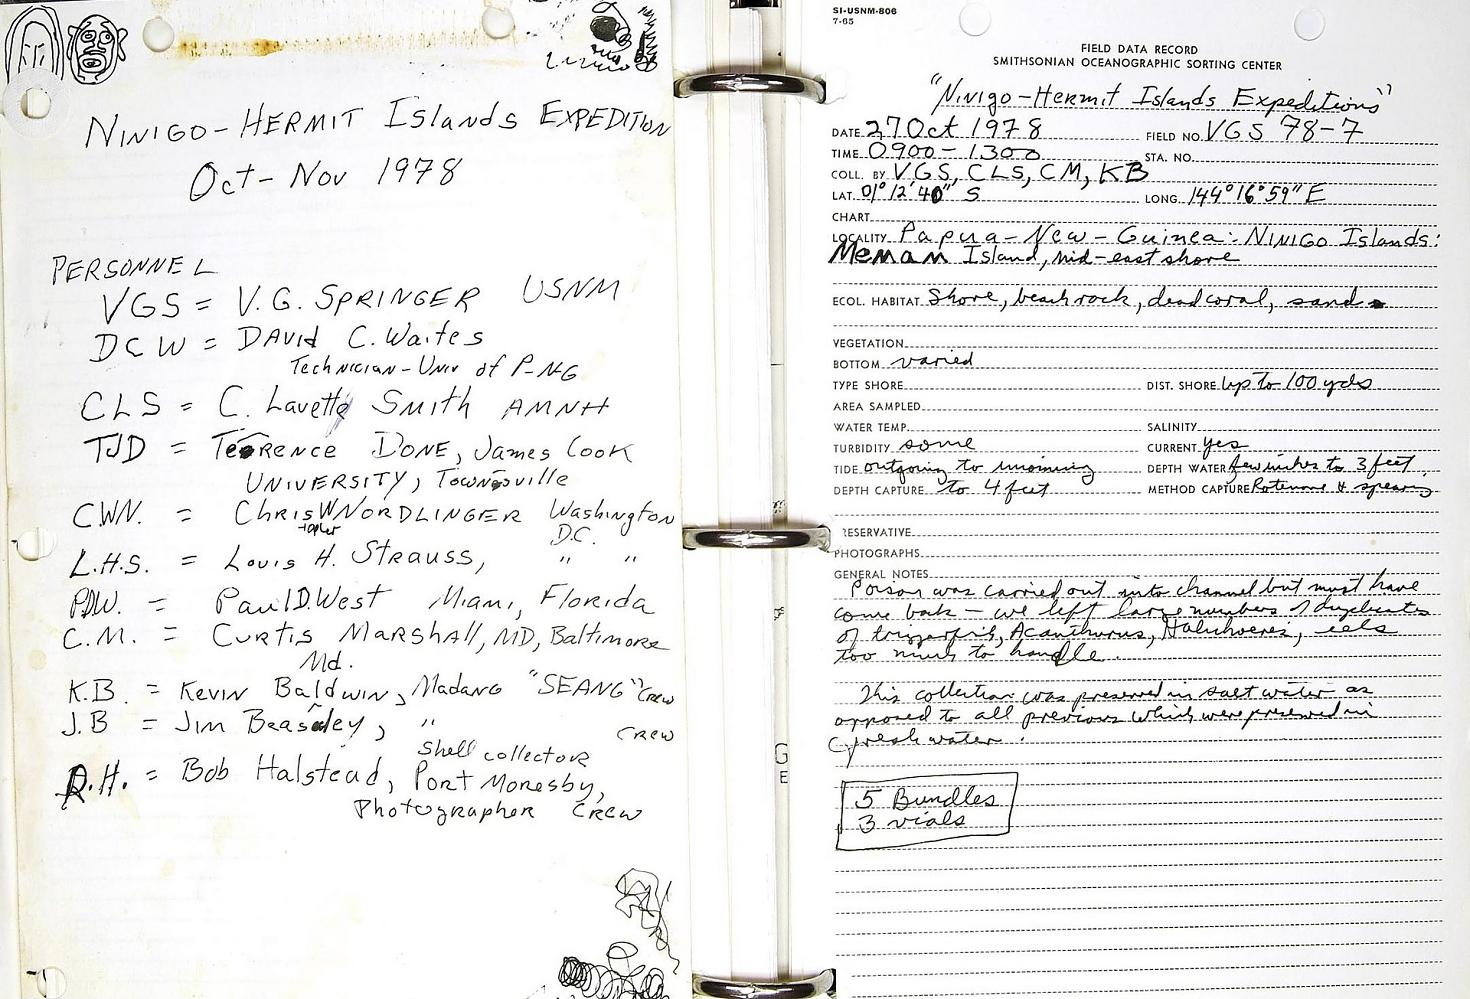 NINIGO-HERMIT Islands EXPEDITION
Oct-Nov 1978
PERSONNEL
VGS = V.G. SPRINGER USNM
DCW = DAVID C. Waites
Technician-Univ of P-NG
CLS = C. Lavette Smith AMNH
TJD = TERRENCE DONE, James Cook
UNIVERSITY, Townsville
CWN. = Chris W NORDLINGER Washington
D.C.
L.H.S. = Louis H. Strauss, " "
PDW. = Paul D. West Miami, Florida
C.M. = Curtis Marshall, MD, Baltimore
Md.
K.B. = Kevin Baldwin, Madang "SEANG" Crew
J.B = Jim Beasley, " Crew
Shell collector
R.H. = Bob Halstead, Port Moresby,
Photographer Crew
SI-USNM-806
7-65
FIELD DATA RECORD
SMITHSONIAN OCEANOGRAPHIC SORTING CENTER
"Ninigo-Hermit Islands Expeditions"
DATE 27 Oct 1978 FIELD NO. VGS 78-7
TIME 0900-1300 STA. NO.
COLL. BY VGS, CLS, CM, KB
LAT. 01° 12' 40" S LONG. 144° 16' 59" E
CHART
LOCALITY Papua-New-Guinea: NINIGO Islands:
Meman Island, mid-east shore
ECOL. HABITAT Shore, beach rock, dead coral, sand
VEGETATION
BOTTOM varied
TYPE SHORE DIST. SHORE Up to 100 yds
AREA SAMPLED
WATER TEMP. SALINITY
TURBIDITY some CURRENT yes
TIDE outgoing to incoming DEPTH WATER few inches to 3 feet
DEPTH CAPTURE to 4 feet METHOD CAPTURE Rotenone & spearing
RESERVATIVE
PHOTOGRAPHS
GENERAL NOTES
Poison was carried out into channel but must have
come back - we left large numbers of duplicates
of triggerfish, Acanthurus, Halichoeres, eels
too much to handle.
This collection was preserved in salt water as
opposed to all previous which were preserved in
fresh water.
5 Bundles
3 vials